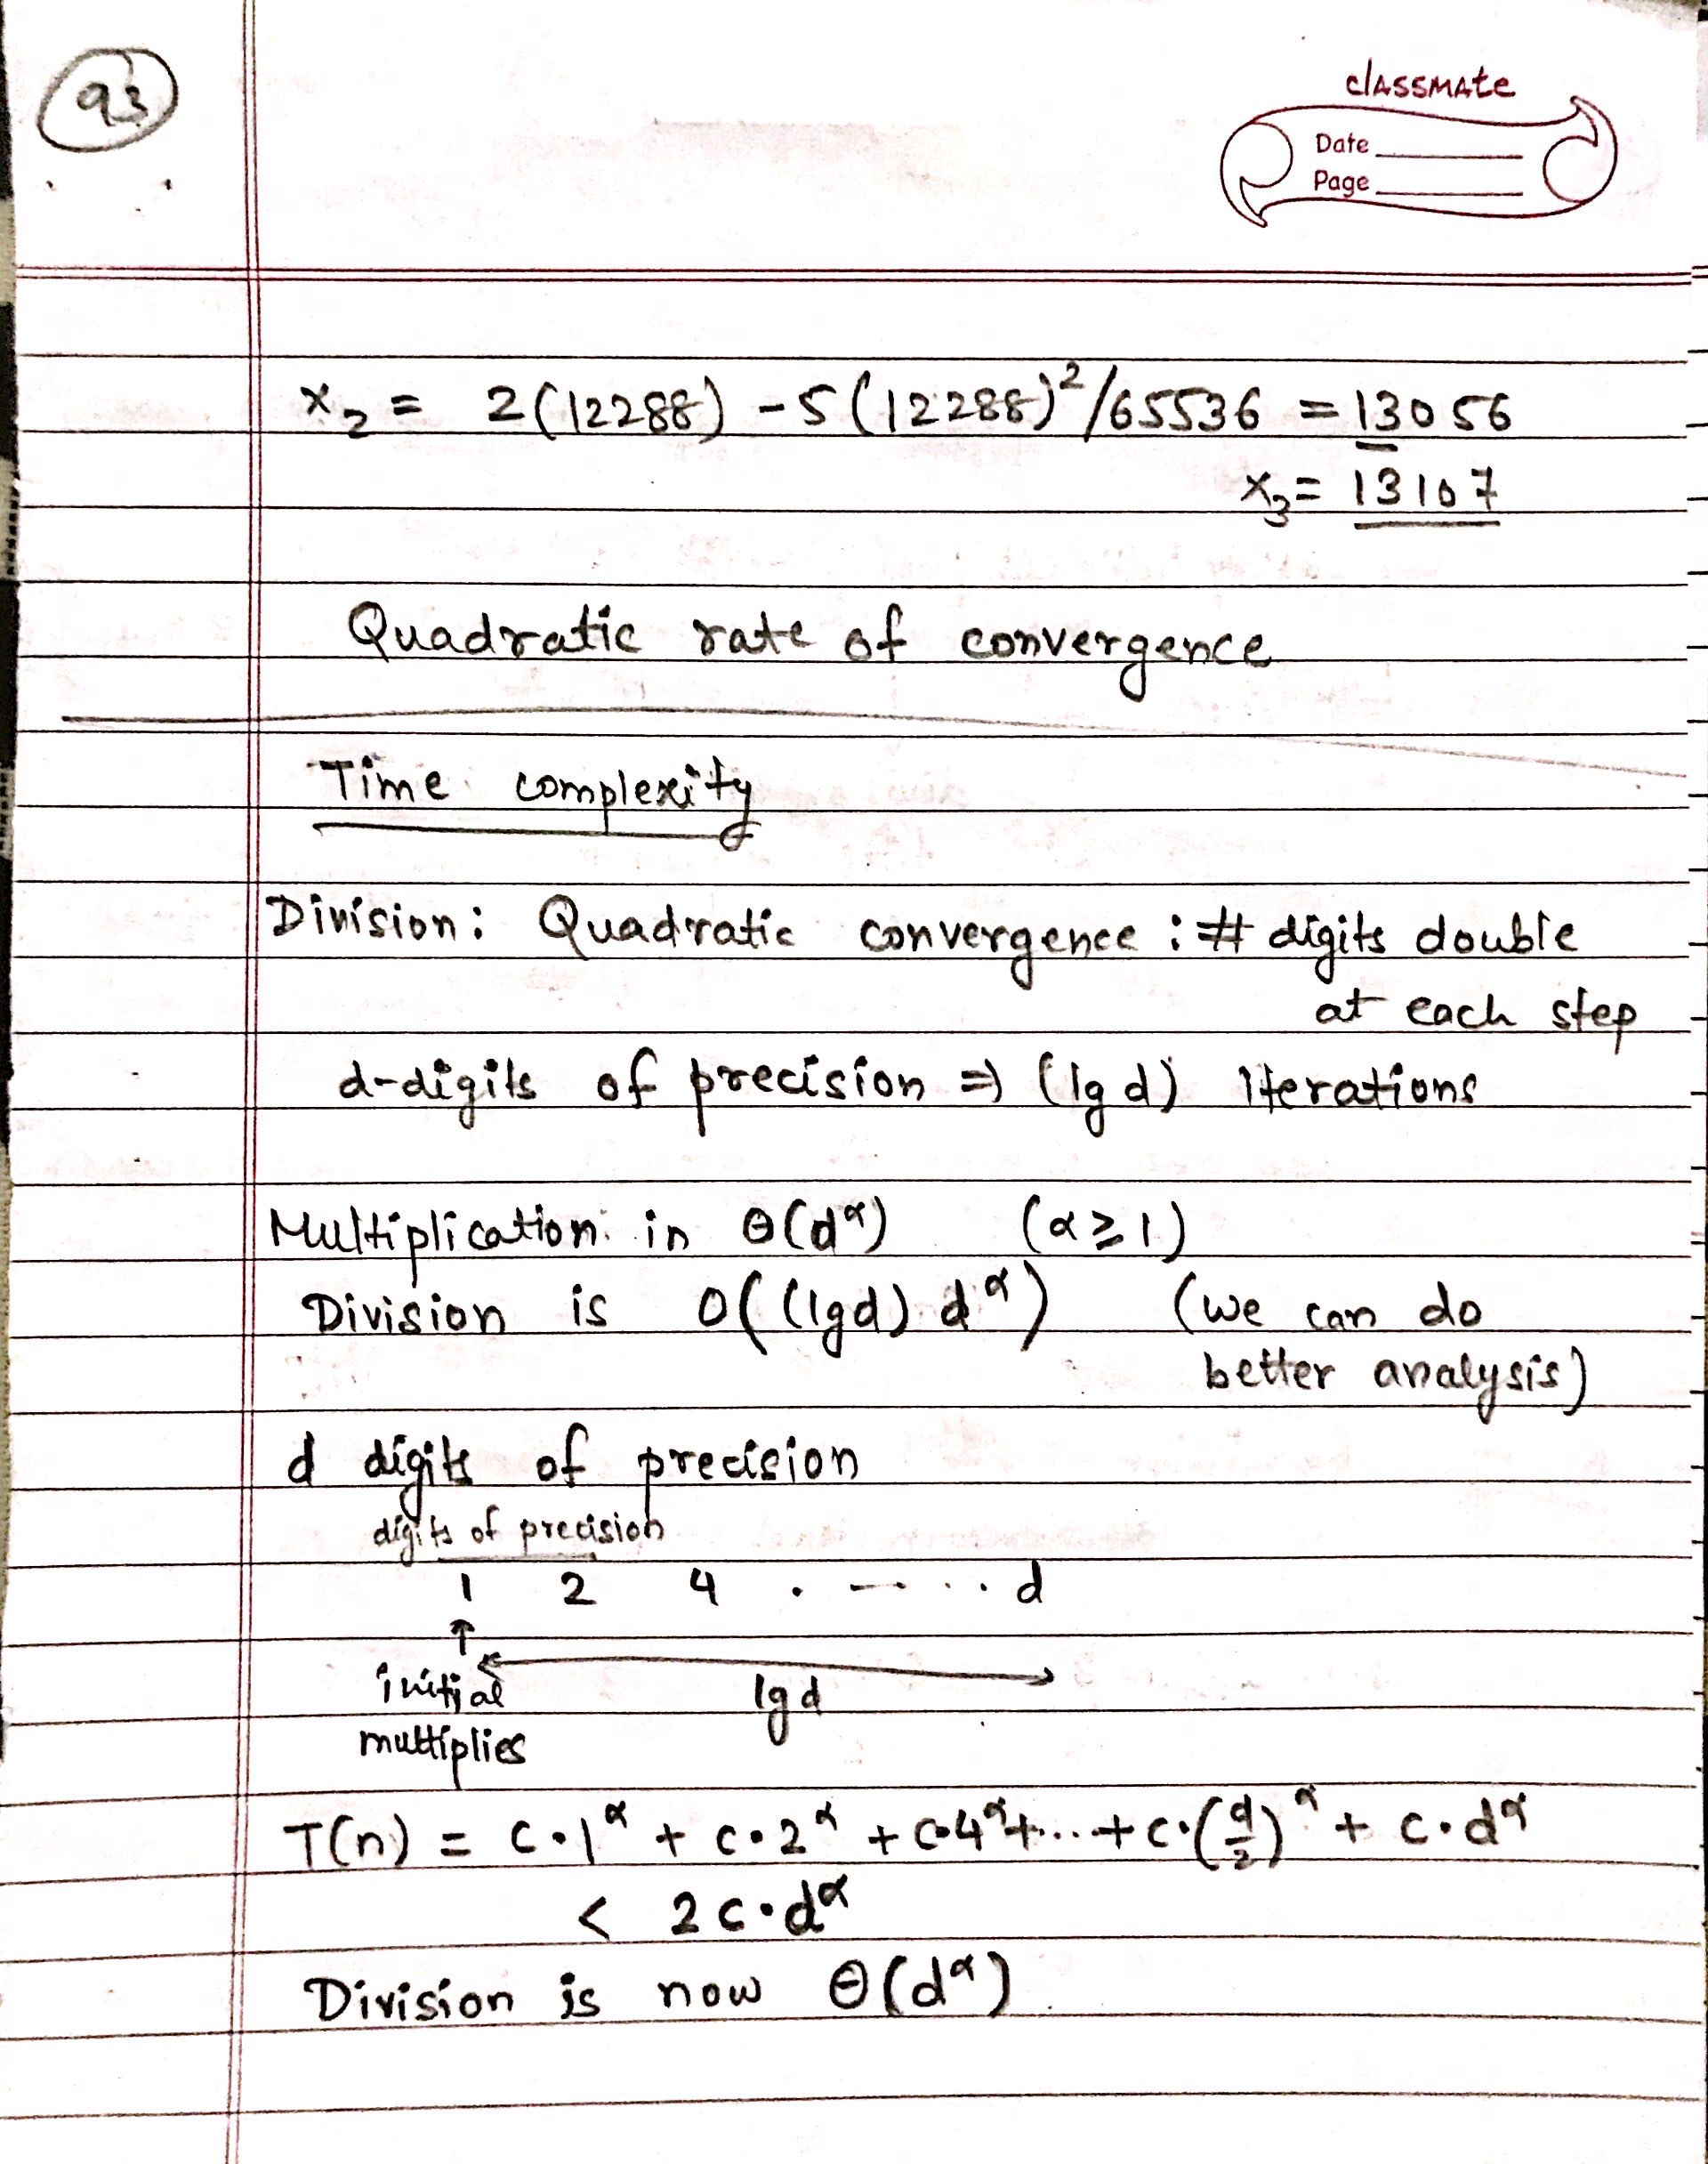 93
classmate
Date
Page
x₂ = 2(12288) - 5(12288)²/65536 = 13056
x₃ = 13107
Quadratic rate of convergence
Time complexity
Division: Quadratic convergence : # digits double
at each step
d-digits of precision ⇒ (lg d) iterations
Multiplication in Θ(d^α) (α ≥ 1)
Division is O((lgd) d^α) (we can do
better analysis)
d digits of precision
digits of precision
1 2 4 . - - . . . d
↑
initial lg d
multiplies
T(n) = c·1^α + c·2^α + c·4^α + ... + c·(d/2)^α + c·d^α
< 2c·d^α
Division is now Θ(d^α)